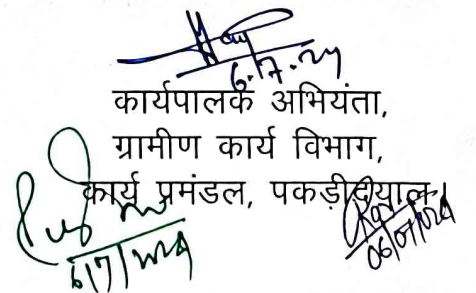 6.7.24
कार्यपालक अभियंता,
ग्रामीण कार्य विभाग,
कार्य प्रमंडल, पकड़ीदयाल।
6/7/2024
06/07/2024